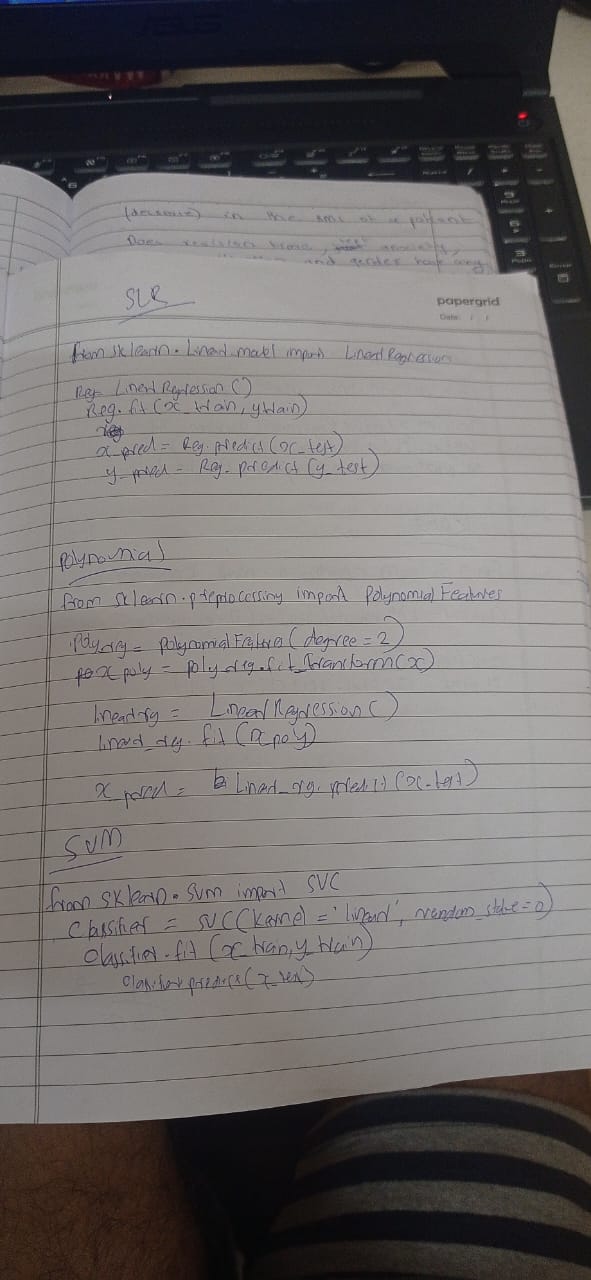 ASUS
(decrease) in the BMI of a patient
Does
and gender have any
SLR
papergrid
Date: / /
from sklearn.Linear_model import LinearRegression
Reg= LinearRegression()
Reg.fit(x_train, y_train)
x_pred = Reg.predict(x_test)
y_pred = Reg.predict(y_test)
Polynomial
from sklearn.preprocessing import Polynomial Features
Polyreg = PolynomialFeatures(degree = 2)
x poly = poly_reg.fit_transform(x)
linearreg = LinearRegression()
linear_reg.fit(x_poly)
x pred = Linear_reg.predict(x_test)
SVM
from sklearn.svm import SVC
Classifier = SVC(kernel = 'linear', random_state = 0)
classifier.fit(x_train, y_train)
classifier.predict(x_test)